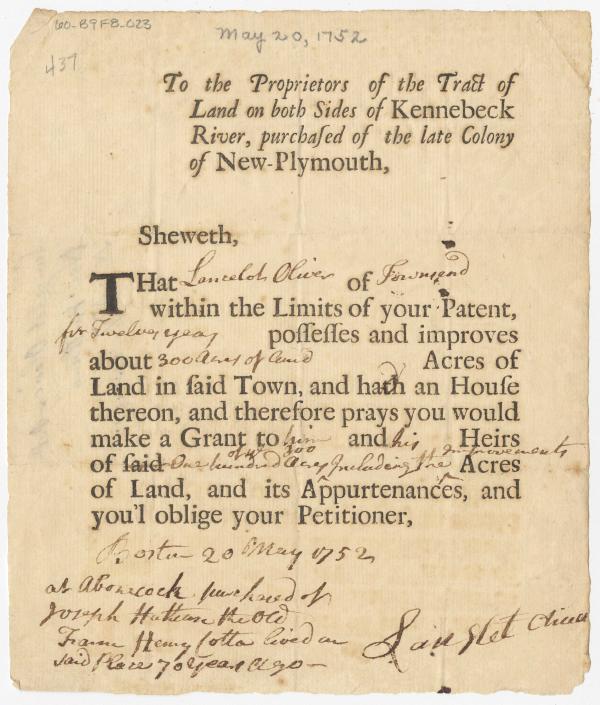 60-B9F8-023
May 20, 1752
437
To the Proprietors of the Tract of
Land on both Sides of Kennebeck
River, purchaſed of the late Colony
of New-Plymouth,
Sheweth,
THat Lancelot Oliver of Townsend
within the Limits of your Patent,
for Twelve years poſſeſſes and improves
about 300 Acres of Land Acres of
Land in ſaid Town, and hath an Houſe
thereon, and therefore prays you would
make a Grant to him and his Heirs
of ye 300 Improvements
of ſaid One hundred Acres Including the Acres
of Land, and its Appurtenances, and
you'l oblige your Petitioner,
Boston 20 May 1752
at purchased of
Joseph the Old
Henry lived on
said Place 70 Years Ago
Langlet Oliver